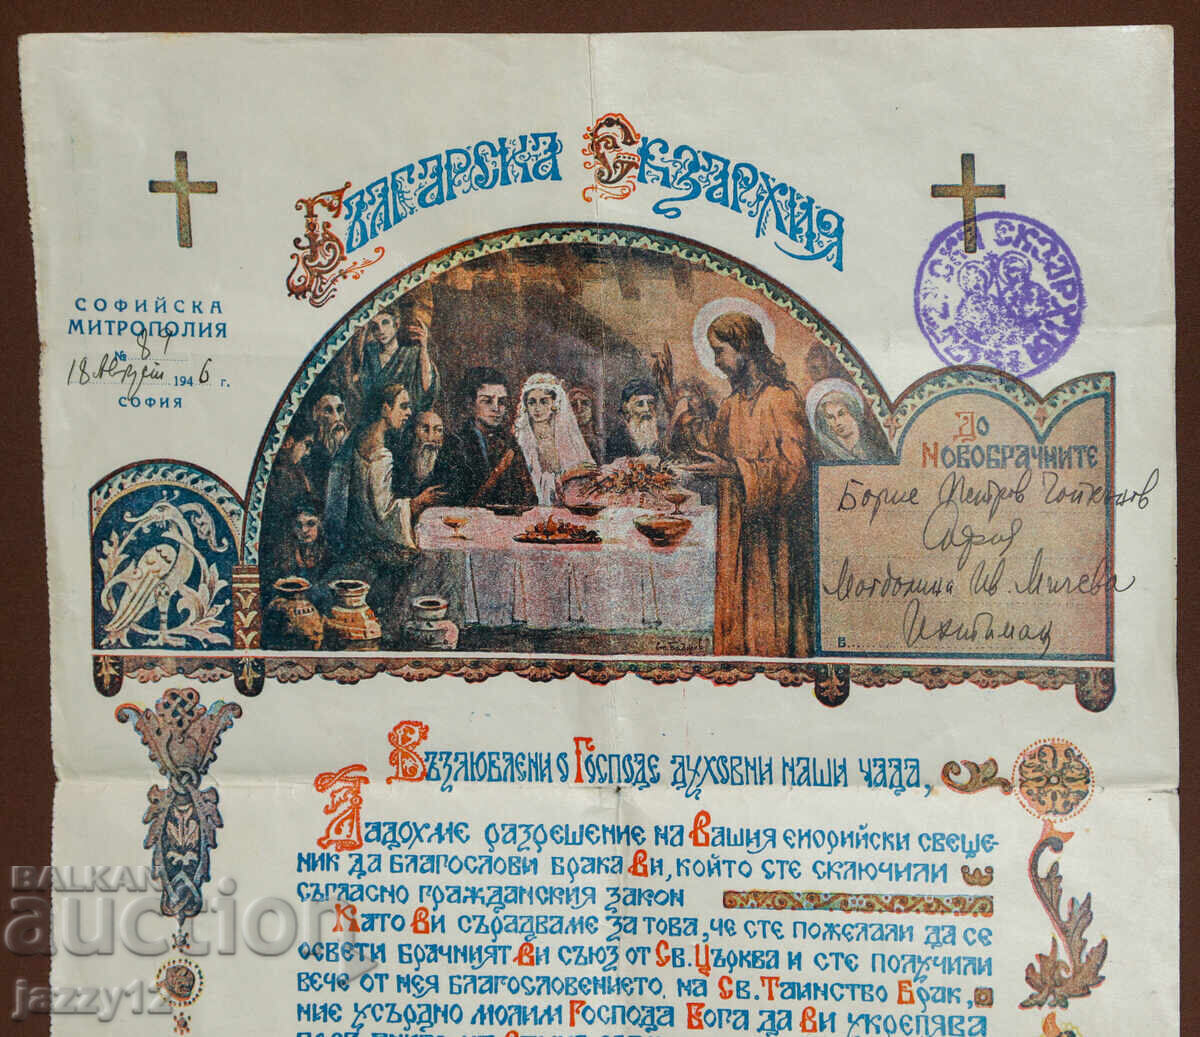 Българска Екзархия
СОФИЙСКА
МИТРОПОЛИЯ
№ 89
18 Август 1946 г.
СОФИЯ
До
Новобрачните
Борис Петров
София
Ив. Мичева
В. Ихтиман
Възлюблени о Господе духовни наши чада,
Дадохме разрешение на Вашия енорийски свеще-
ник да благослови брака Ви, който сте сключили
съгласно гражданския закон
Като Ви сърадваме за това, че сте пожелали да се
освети брачният Ви съюз от Св. Църква и сте получили
вече от нея благословението на Св. Таинство Брак,
ние усърдно молим Господа Бога да Ви укрепява
BALKAN
auction
jazzy12